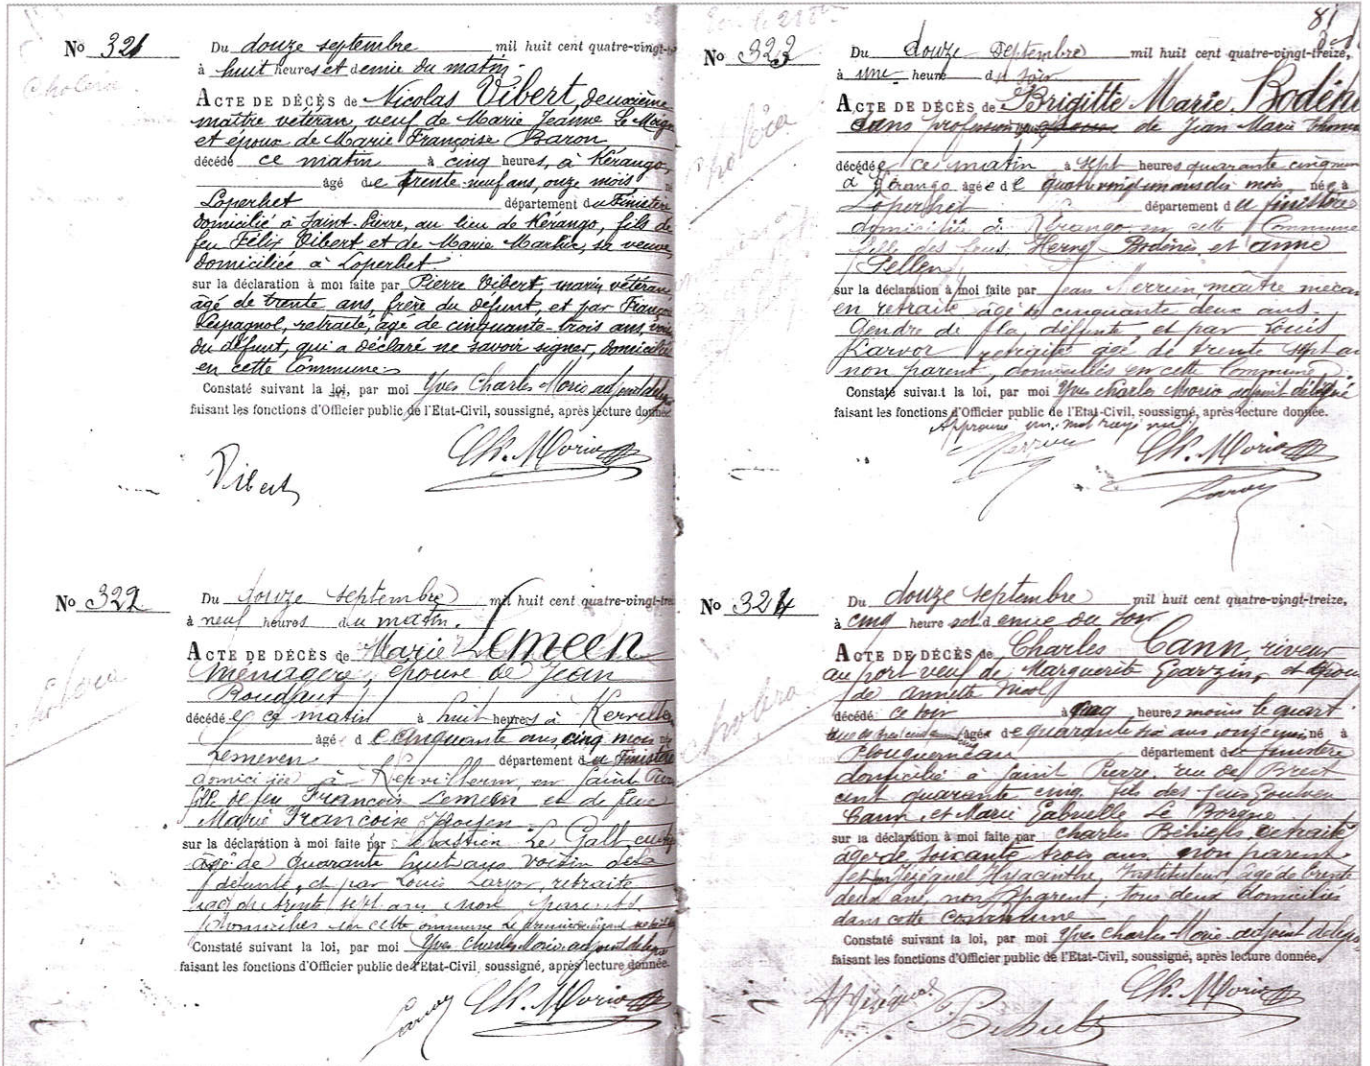 81
No 321
cholera
Du douze septembre mil huit cent quatre-vingt-
à huit heures et demie du matin.
ACTE DE DÉCÈS de Nicolas Vibert, deuxième
maître vétéran, veuf de Marie Jeanne Le
et époux de Marie Françoise Baron
décédé ce matin à cinq heures, à Kérango,
âgé de trente-neuf ans, onze mois né
Loperhet département du Finistère
domicilié à Saint-Pierre, au lieu de Kérango, fils de
feu Félix Vibert et de Marie, sa veuve,
domiciliée à Loperhet
sur la déclaration à moi faite par Pierre Vibert, marin vétéran,
âgé de trente ans, frère du défunt, et par François
Lespagnol, retraité, âgé de cinquante-trois ans, voisin
du défunt, qui a déclaré ne savoir signer, domiciliés
en cette Commune
Constaté suivant la loi, par moi Yves Charles Morio adjoint délégué
faisant les fonctions d'Officier public de l'Etat-Civil, soussigné, après lecture donnée
Vibert
Ch. Morio
No 322
cholera
Du douze septembre mil huit cent quatre-vingt-tre
à neuf heures du matin.
ACTE DE DÉCÈS de Marie Lemeen
ménagère épouse de Jean
Roudaut
décédée ce matin à huit heures à
âgée de cinquante ans, cinq mois née
département du Finistère
domiciliée à en Saint Pierre
fille de feu François Lemeen et de feue
Marie Françoise
sur la déclaration à moi faite par Sébastien Le Gall,
âgé de quarante huit ans voisin de la
défunte, et par Louis retraité
âgé de trente sept ans non parents
domiciliés en cette commune
Constaté suivant la loi, par moi Yves Charles Morio adjoint délégué
faisant les fonctions d'Officier public de l'Etat-Civil soussigné, après lecture donnée
Ch. Morio
No 323
cholera
Du douze septembre mil huit cent quatre-vingt-treize,
à une heure du soir
ACTE DE DÉCÈS de Brigitte Marie Bodéné
sans profession de Jean Marie
décédée ce matin à sept heures quarante cinq
à Kérango âgée de quatre vingt un ans dix mois née à
Loperhet département du finistère
domiciliée à Kérango en cette Commune
fille des feus Hervé Bodénès et anne
sur la déclaration à moi faite par Jean Merrien, maître
en retraite âgé de cinquante deux ans,
Gendre de la défunte et par Louis
retraité âgé de trente sept ans
non parent, domiciliés en cette Commune
Constaté suivant la loi, par moi Yves Charles Morio adjoint délégué
faisant les fonctions d'Officier public de l'Etat-Civil, soussigné, après lecture donnée.
Approuvé un mot rayé nul
Merrien
Ch. Morio
No 324
cholera
Du douze septembre mil huit cent quatre-vingt-treize,
à cinq heures et demie du soir
ACTE DE DÉCÈS de Charles Cann, riveur
au port veuf de Marguerite et époux
de annette
décédé ce soir à cinq heures moins le quart
âgé de quarante ans, onze mois né à
Plouguerneau département du finistère
domicilié à Saint Pierre rue de Brest
cent quarante cinq, fils des feus Gouven
Cann, et Marie Gabrielle Le Borgne
sur la déclaration à moi faite par Charles retraité
âgé de soixante trois ans non parent
et Hyacinthe, Instituteur, âgé de trente
deux ans, non parent, tous deux domiciliés
dans cette commune
Constaté suivant la loi, par moi Yves Charles Morio adjoint délégué
faisant les fonctions d'Officier public de l'Etat-Civil, soussigné, après lecture donnée,
Ch. Morio